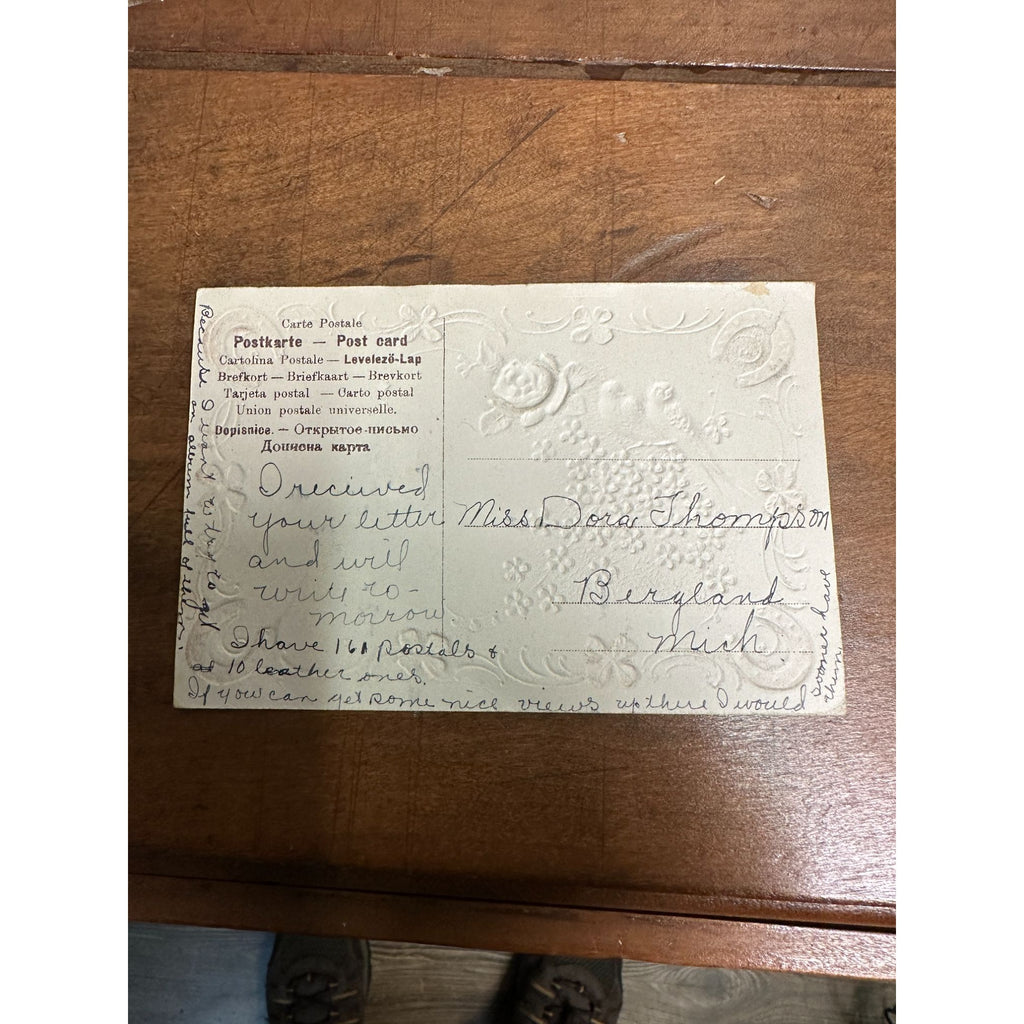 Carte Postale
Postkarte — Post card
Cartolina Postale — Levelező-Lap
Brefkort — Briefkaart — Brevkort
Tarjeta postal — Carto postal
Union postale universelle.
Dopisnice. — Открытое письмо
Дописна карта
I recieved
your letter
and will
write to-
morrow
I have 161 postals &
10 leather ones.
If you can get some nice views up there I would
sooner have
them.
Because I want to try to get
an album full of them.
Miss Dora Thompson
Bergland
Mich.